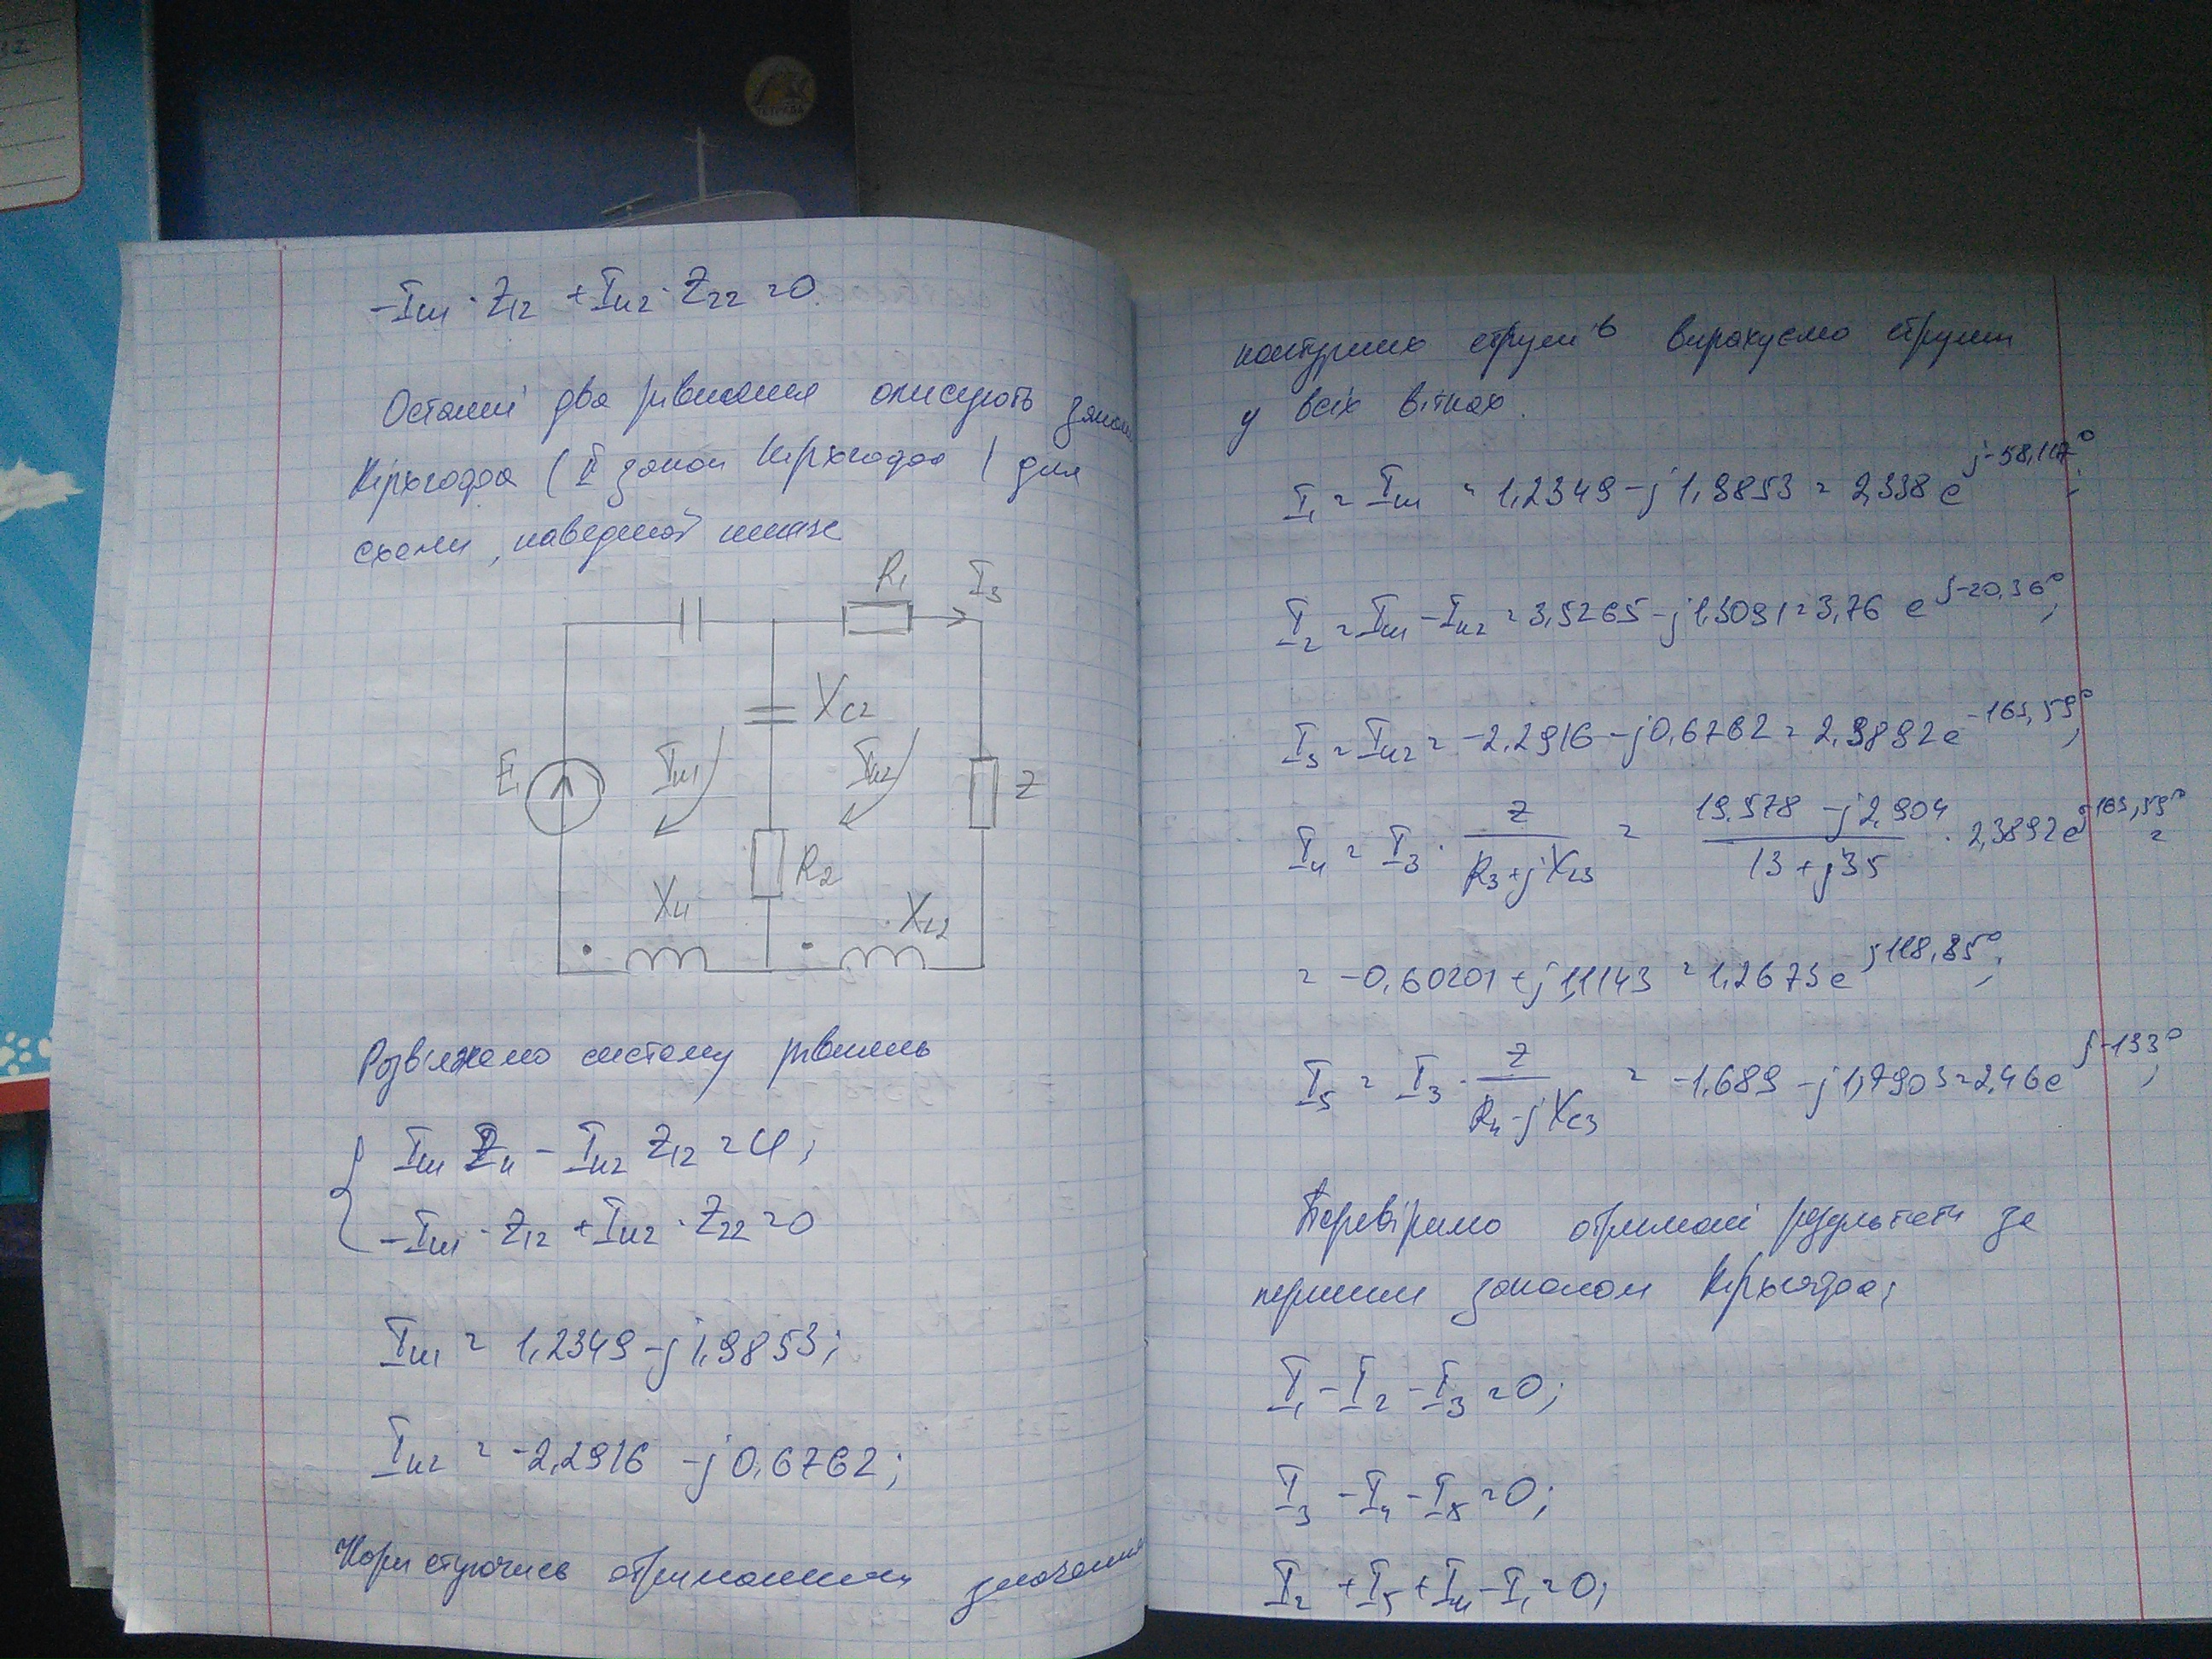 -Iк1 · Z12 + Iк2 · Z22 = 0.
Останні два рівняння описують закони
Кірхгофа (II закон Кірхгофа) для
схеми, наведеної нижче
R1 I3
XC2
E1 Iк1 Iк2 Z
R2
XL1 XL2
Розв'яжемо систему рівнянь
Iк1 Z11 - Iк2 Z12 = E1;
-Iк1 · Z12 + Iк2 · Z22 = 0
Iк1 = 1,2349 - j1,9853;
Iк2 = -2,2916 - j0,6762;
Користуючись отриманими значеннями
контурних струмів вирахуємо струми
у всіх вітках.
I1 = Iк1 = 1,2349 - j1,9853 = 2,338 e^j-58,117°;
I2 = Iк1 - Iк2 = 3,5265 - j1,3091 = 3,76 e^j-20,36°;
I3 = Iк2 = -2,2916 - j0,6762 = 2,3892 e^-163,59°;
I4 = I3 · Z / (R3 + jXL3) = (19,578 - j2,904) / (13 + j35) · 2,3892 e^j163,59° =
= -0,60201 + j1,1143 = 1,2673 e^j118,35°;
I5 = I3 · Z / (R4 - jXC3) = -1,689 - j1,7903 = 2,46 e^j-133°;
Перевіримо отримані результати за
першим законом Кірхгофа;
I1 - I2 - I3 = 0;
I3 - I4 - I5 = 0;
I2 + I5 + I4 - I1 = 0;